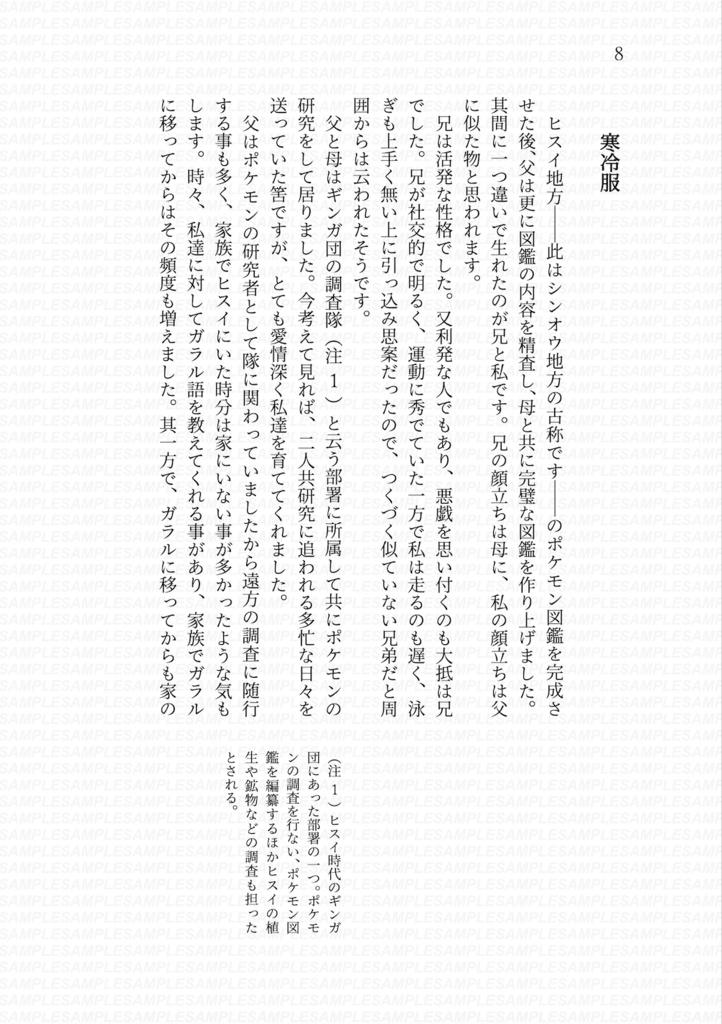 8
寒冷服
ヒスイ地方――此はシンオウ地方の古称です――のポケモン図鑑を完成さ
せた後、父は更に図鑑の内容を精査し、母と共に完璧な図鑑を作り上げました。
其間に一つ違いで生れたのが兄と私です。兄の顔立ちは母に、私の顔立ちは父
に似た物と思われます。
兄は活発な性格でした。又利発な人でもあり、悪戯を思い付くのも大抵は兄
でした。兄が社交的で明るく、運動に秀でていた一方で私は走るのも遅く、泳
ぎも上手く無い上に引っ込み思案だったので、つくづく似ていない兄弟だと周
囲からは云われたそうです。
父と母はギンガ団の調査隊（注１）と云う部署に所属して共にポケモンの
研究をして居りました。今考えて見れば、二人共研究に追われる多忙な日々を
送っていた筈ですが、とても愛情深く私達を育ててくれました。
父はポケモンの研究者として隊に関わっていましたから遠方の調査に随行
する事も多く、家族でヒスイにいた時分は家にいない事が多かったような気も
します。時々、私達に対してガラル語を教えてくれる事があり、家族でガラル
に移ってからはその頻度も増えました。其一方で、ガラルに移ってからも家の
（注１）ヒスイ時代のギンガ
団にあった部署の一つ。ポケモ
ンの調査を行ない、ポケモン図
鑑を編纂するほかヒスイの植
生や鉱物などの調査も担った
とされる。